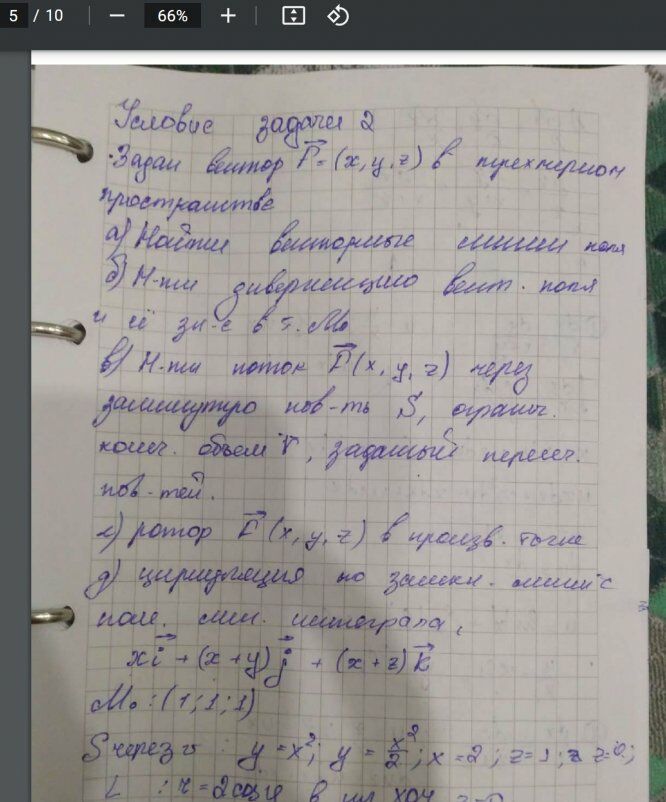 5 / 10 66%
Условие задачи 2
Задан вектор F = (x, y, z) в трехмерном
пространстве
а) Найти векторные линии поля
б) Н-ти дивергенцию вект. поля
и её зн-е в т. M₀
в) Н-ти поток F(x, y, z) через
замкнутую пов-ть S, огранич.
конеч. объем V, заданый пересеч.
пов-тей.
г) ротор F(x, y, z) в произв. точке
д) циркуляция по замкн. линии с
пом. лин. интеграла,
xi + (x+y)j + (x+z)k
M₀ : (1; 1; 1)
S через v : y = x²; y = x²/2; x = 2; z = 1; z = 0;
L : r = 2 в пл. хоу